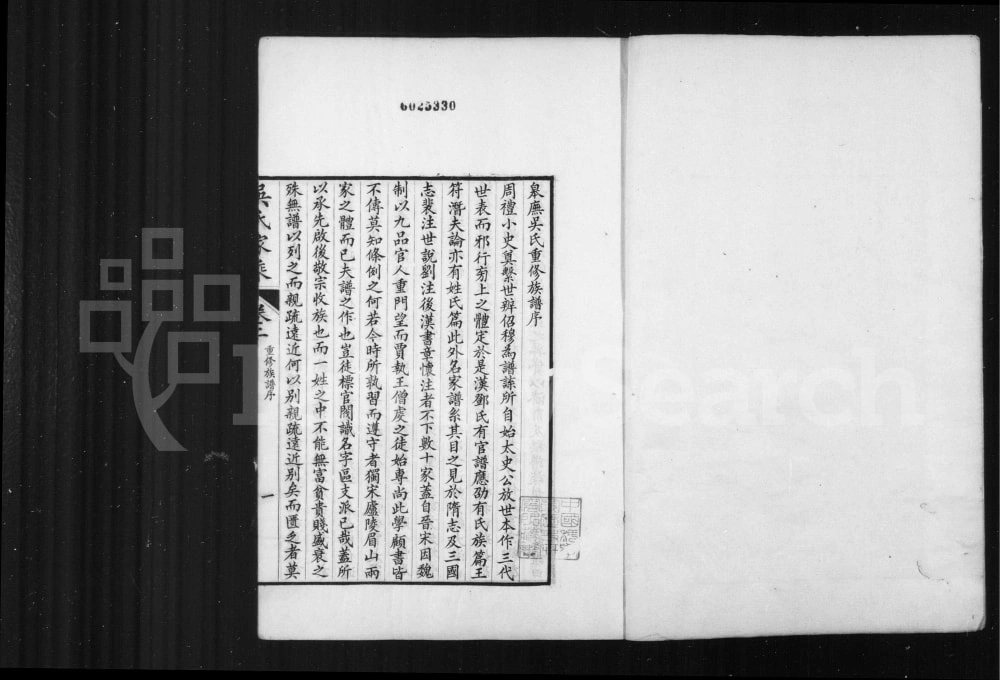 6025330
皋廡吳氏重修族譜序
周禮小史奠繫世辨佋穆為譜諜所自始太史公放世本作三代
世表而邪行㫄上之體定於是漢鄧氏有官譜應劭有氏族篇王
符潛夫論亦有姓氏篇此外名家譜系其目之見於隋志及三國
志裴注世說劉注後漢書章懷注者不下數十家蓋自晉宋因魏
制以九品官人重門望而賈執王僧虔之徒始專尚此學顧書皆
不傳莫知條例之何若今時所孰習而遵守者獨宋廬陵眉山兩
家之體而已夫譜之作也豈徒標官閥識名字區支派已哉蓋所
以承先啟後敬宗收族也而一姓之中不能無富貧貴賤盛衰之
殊無譜以列之而親疏遠近何以別親疏遠近別矣而匱乏者莫
吳氏家乘
卷二
重修族譜序
一